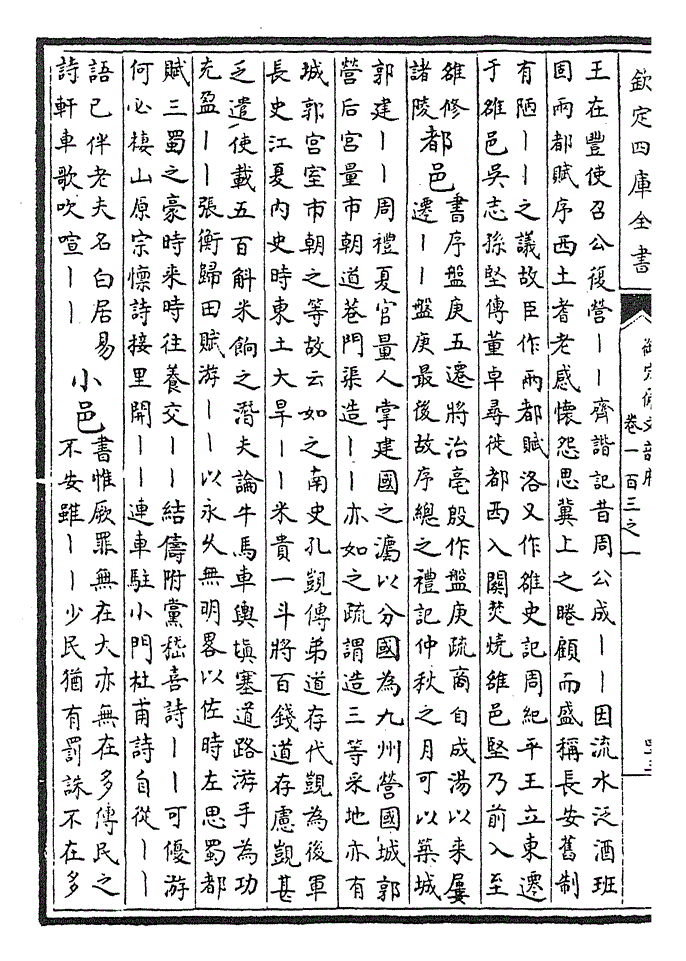 欽定四庫全書
御定佩文韻府
卷一百三之一
王在豐使召公復營丨丨齊諧記昔周公成丨丨因流水泛酒班
固兩都賦序西土耆老感懷怨思冀上之睠顧而盛稱長安舊制
有陋丨丨之議故臣作兩都賦洛又作雒史記周紀平王立東遷
于雒邑吳志孫堅傳董卓尋徙都西入關焚燒雒邑堅乃前入至
雒修
諸陵
都邑
書序盤庚五遷將治亳殷作盤庚疏商自成湯以來屢
遷丨丨盤庚最後故序總之禮記仲秋之月可以築城
郭建丨丨周禮夏官量人掌建國之灋以分國為九州營國城郭
營后宮量市朝道巷門渠造丨丨亦如之疏謂造三等采地亦有
城郭宮室市朝之等故云如之南史孔覬傳弟道存代覬為後軍
長史江夏內史時東土大旱丨丨米貴一斗將百錢道存慮覬甚
乏遣使載五百斛米餉之潛夫論牛馬車輿塡塞道路游手為功
充盈丨丨張衡歸田賦游丨丨以永久無明畧以佐時左思蜀都
賦三蜀之豪時来時往養交丨丨結儔附黨嵇喜詩丨丨可優游
何必棲山原宗懍詩接里開丨丨連車駐小門杜甫詩自從丨丨
語已伴老夫名白居易
詩軒車歌吹喧丨丨
小邑
書惟厥罪無在大亦無在多傳民之
不安雖丨丨少民猶有罰誅不在多